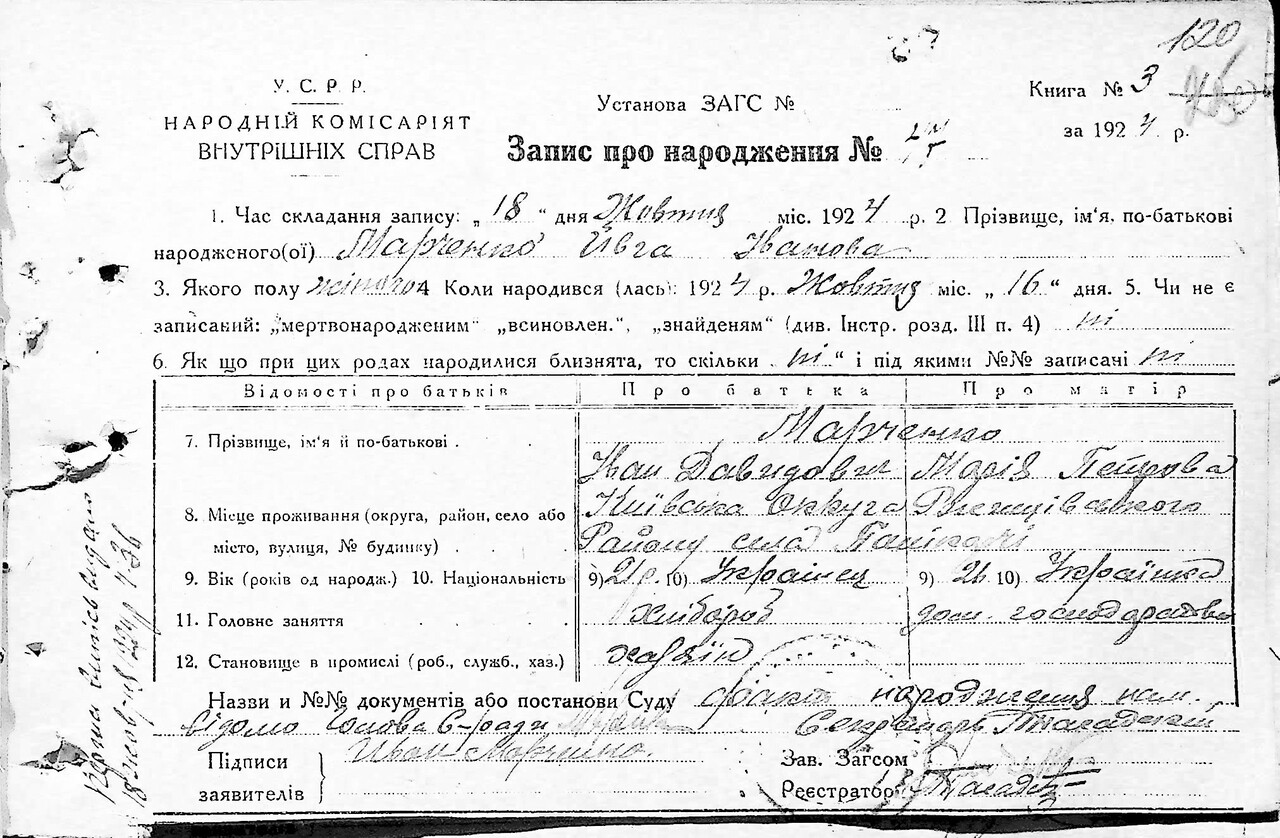 120
У. С. Р. Р.
НАРОДНІЙ КОМІСАРІЯТ
ВНУТРІШНІХ СПРАВ
Установа ЗАГС №
Книга № 3
за 1924 р.
Запис про народження №
1. Час складання запису: „ 18 “ дня Жовтня міс. 1924 р. 2 Прізвище, ім'я, по-батькові
народженого(ої) Марченко Ивга Іванова
3. Якого полу жіночо 4 Коли народився (лась): 1924 р. Жовтня міс. „ 16 “ дня. 5. Чи не є
записаний: „мертвонародженим“ „всиновлен.“, „знайденям“ (див. Інстр. розд. III п. 4) ні
6. Як що при цих родах народилися близнята, то скільки „ ні “ і під якими №№ записані ні
Відомості про батьків Про батька Про матір
7. Прізвище, ім'я й по-батькові . . . Марченко
Іван Давидович Марія Петрова
8. Місце проживання (округа, район, село або Київська Округа
місто, вулиця, № будинку) . . . Району села
9. Вік (років од народж.) 10. Національність 9) 21 р. 10) Українец 9) 10) Українка
11. Головне заняття . . . . хлібороб дом. господарство
12. Становище в промислі (роб., служб., хаз.) хазяїн
Назви и №№ документів або постанови Суду факт народження нам
відомо Голова С-ради Секретарь
Підписи
заявителів
Иван Марченко
Зав. Загсом
Реєстратор